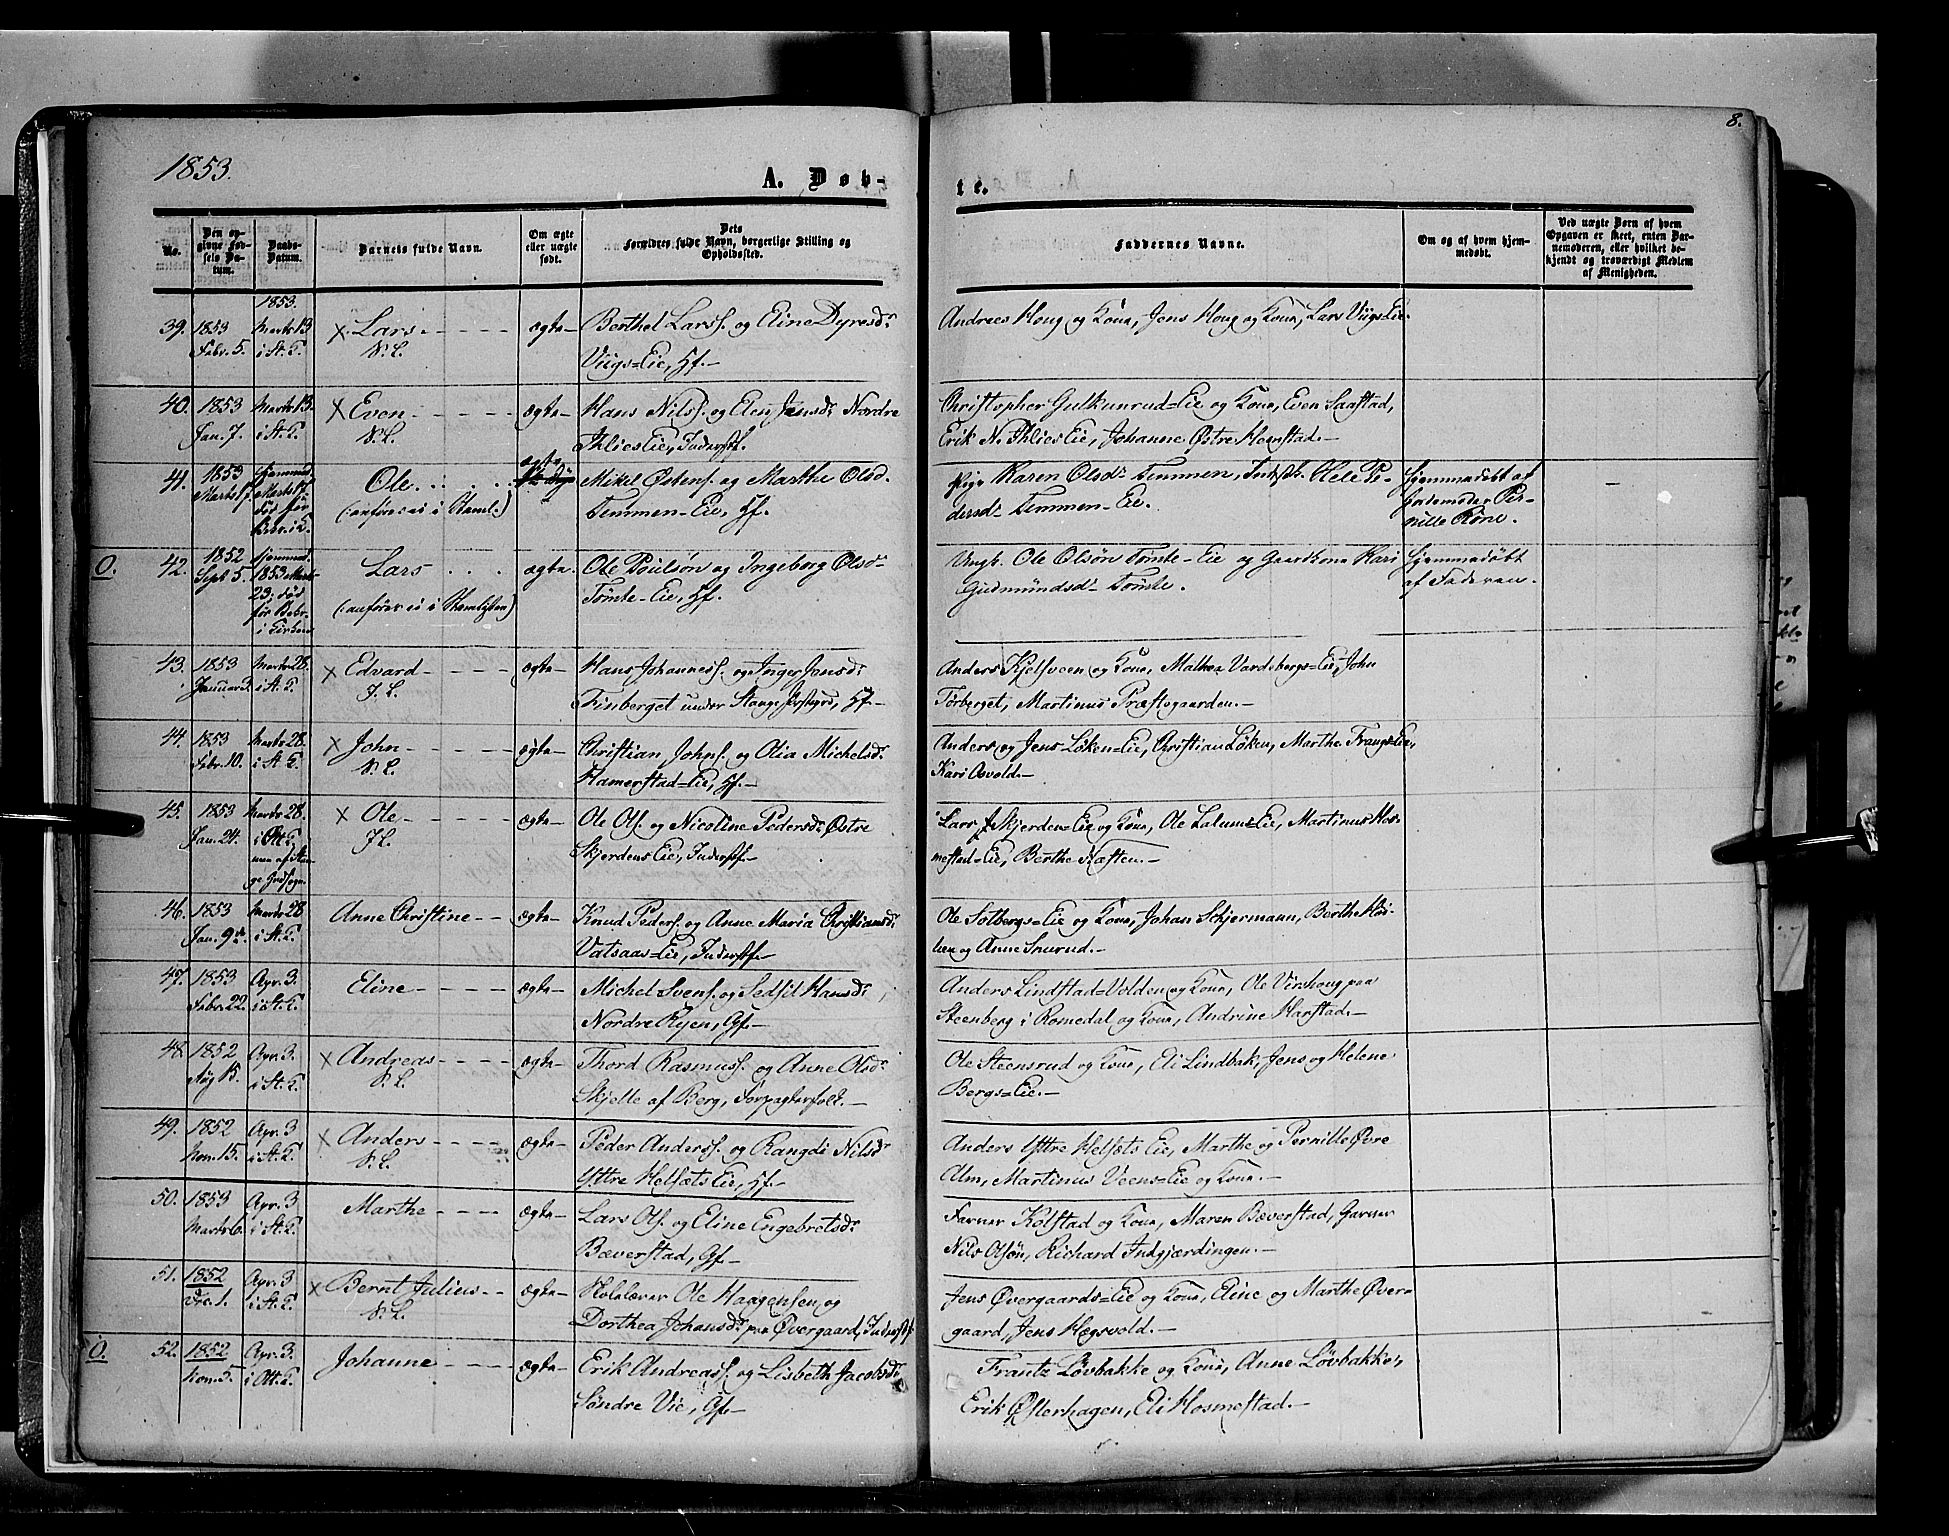 8.
1853.
A. Døb-
te.
No.
Den op-
givne Fød-
sels Da-
tum.
Daabs-
Datum.
Barnets fulde Navn.
Om ægte
eller uægte
født.
Dets
Forældres fulde Navn, borgerlige Stilling og
Opholdssted.
Faddernes Navne.
Om og af hvem hjem-
medøbt.
Ved uægte Børn af hvem
Opgaven er skeet, enten Bar-
nemoderen, eller hvilket be-
kjendt og troværdigt Medlem
af Menigheden.
39. 1853 Febr. 5.
1853. Marts 13 i St. K.
x Lars
V. L.
ægte
Berthel Larss. og Eline Dyresdr
Viigs=Eie, Hf.
Andreas Houg og Kone, Jens Houg og Kone, Lars Viigs=Eie.
40. 1853 Jan. 7.
Marts 13. i St. K.
x Even
V. L.
ægte
Hans Nilss. og Elen Jensdr Nordre
Eie, Inderstf.
Christopher Gulkunrud=Eie og Kone, Even Saastad,
Erik N. Eie, Johanne Østre Hemstad.
41. 1853 Marts
hjemmed. Marts død før Bekr. i K.
Ole
(: anføres ei i Haml.)
ægte
Mikel Østens. og Marthe Olsd.
Temmen=Eie, Hf.
Pige Karen Olsdr Temmen, Inderst. Hele Pe-
dersdr Temmen=Eie.
hjemmedøbt af
Jordemoder Per-
nille Røne.
O. 42. 1852 Sept. 5.
hjemmed. 1853 Marts 23; død før Bekr. i Kirken
Lars
ægte
Ole Poulsøn og Ingeborg Olsdr
Tomte=Eie, Hf.
Ungk. Ole Olsøn Tomte=Eie og Gaardkone Kari
Gudmundsdr Tomte.
hjemmedøbt
af Faderen.
43. 1853 Januar 3.
Marts 28. i St. K.
x Edvard
J. L.
ægte
Hans Johanness. og Inger Jensdr
Finberget under Stange Præstegrd, Hf.
Anders Kjelsveen og Kone, Mathea Vardebergs=Eie, John
Torberget, Martinus Præstegaarden.
44. 1853 Febr. 10.
Marts 28. i St. K.
x John
V. L.
ægte
Christian Johns. og Olia Michelsdr
Hamerstad=Eie, Hf.
Anders og Jens Løken=Eie, Christian Løken, Marthe Frangs=Eie,
Kari Osvold.
45. 1853 Jan. 24.
Marts 28. i St. K.
x Ole
J. L.
ægte
Ole Ols. og Nicoline Pedersdr Østre
Skjerdens Eie, Inderstf.
Lars Skjerdens=Eie og Kone, Ole Lalums=Eie, Martinus Hos-
mestad=Eie, Berthe Hæften.
46. 1853 Jan. 9de
Marts 28 i St. K.
Anne Christine
ægte
Knud Peders. og Anne Maria Christiansdr
Vatsaas=Eie, Inderstf.
Ole Solbergs=Eie og Kone, Johan Skjermann, Berthe
og Anne Snurud.
47. 1853 Febr. 22.
Apr. 3. i St. K.
Eline
ægte
Michel Svens. og Sedsil Hansdr
Nordre Ryen, Gf.
Anders Lindstad=Volden og Kone, Ole Virshoug paa
Steenberg i Romedal og Kone, Andrine Harstad.
48. 1852 Aug. 15.
Apr. 3. i St. K.
x Andreas
V. L.
ægte
Thord Rasmuss. og Anne Olsdr
Skjelle af Berg, Forpagterfolk.
Ole Steensrud og Kone, Eli Lindbak, Jens og Helene
Bergs=Eie.
49. 1852 Nov. 15.
Apr. 3 i St. K.
x Anders
V. L.
ægte
Peder Anderss. og Rangdi Nilsdr
Yttre Helsets Eie, Hf.
Anders Yttre Helsets Eie, Marthe og Pernille Øvre
Alm, Martinus Veens=Eie og Kone.
50. 1853 Marts 6.
Apr. 3 i St. K.
Marthe
ægte
Lars Ols. og Eline Engebretsdr
Bæverstad, Gf.
Farver Kolstad og Kone, Maren Bæverstad, Garver
Nils Olsøn, Richard Indgjærdingen.
51. 1852 Dec. 1.
Apr. 3 i St. K.
x Bernt Julius
V. L.
ægte
Skolelærer Ole Haagensen og
Dorthea Johansdr paa Øvergaard, Inderstf.
Jens Øvergaards=Eie og Kone, Eline og Marthe Øver-
gaard, Jens Hægsvold.
O. 52. 1852 Nov. 5.
Apr. 3. i Ott. K.
Johanne
ægte
Erik Andreass. og Lisbeth Jacobsdr
Søndre Vie, Gf.
Frantz Løvbakke og Kone, Anne Løvbakke,
Erik Østerhagen, Eli Hosmestad.